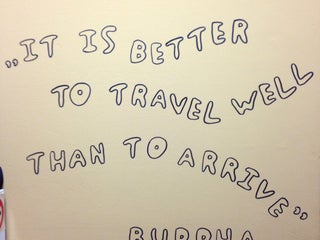 „IT IS BETTER
TO TRAVEL WELL
THAN TO ARRIVE”
BUDDHA